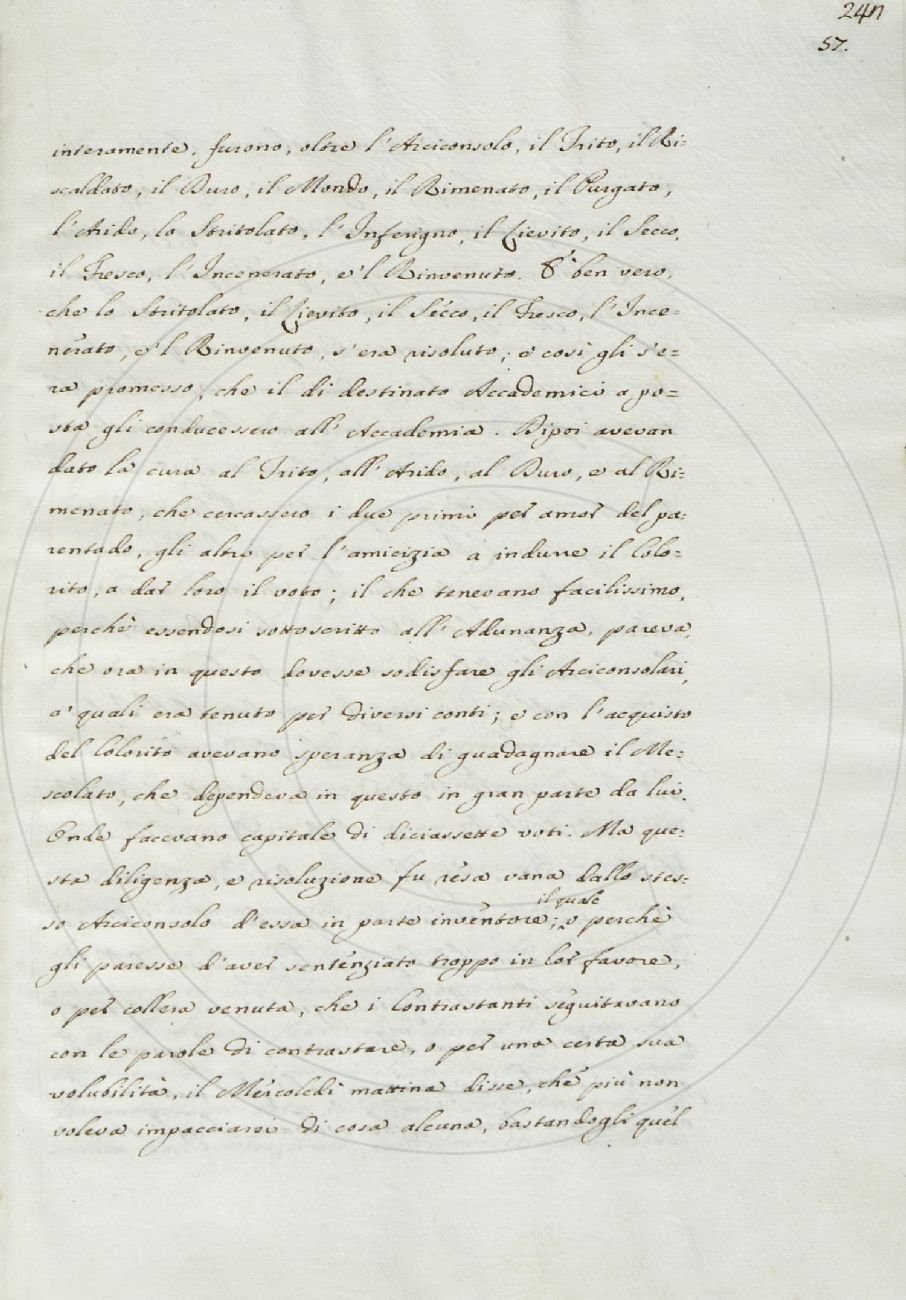 24n
57.
interamente, furono, oltre l'Arciconsolo, il Trito, il Ri=
scaldato, il Duro, il Mondo, il Rimenato, il Purgato,
l'Arido, lo Stritolato, l'Inferigno, il Lievito, il Secco,
il Fresco, l'Incenerato, e'l Rinvenuto. È ben vero,
che lo Stritolato, il Lievito, il Secco, il Fresco, l'Ince=
nerato, e'l Rinvenuto, s'era risoluto, e così gli s'e=
ra promesso, che il dì destinato Accademici a po=
sta gli conducessero all'Accademia. Dipoi avevan
dato la cura al Trito, all'Arido, al Duro, e al Ri=
menato, che cercassero i due primi per amor del pa=
rentado, gli altri per l'amicizia a indurre il Colo=
rito, a dar loro il voto; il che tenevano facilissimo,
perchè essendosi sottoscritto all'Adunanza, pareva,
che ora in questo dovesse sodisfare gli Arciconsolari,
a' quali era tenuto per diversi conti; e con l'acquisto
del Colorito avevano speranza di guadagnare il Me=
scolato, che dependeva in questo in gran parte da lui.
Onde facevano capitale di diciassette voti. Ma que=
sta diligenza, e risoluzione fu resa vana dallo stes=
il quale
so Arciconsolo d'essa in parte inventore; o perchè
gli paresse d'aver sentenziato troppo in lor favore,
o per collera venuta, che i Contrastanti seguitavano
con le parole di contrastare, o per una certa sua
volubilità, il Mercoledì mattina disse, che più non
voleva impacciarsi di cosa alcuna, bastandogli quel